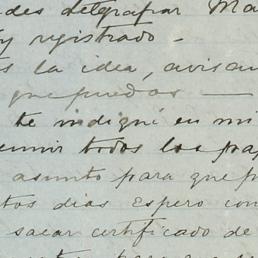 des telegrafiar Ma
y registrado -
s la idea, avisan
que puedas —
te indiqué en mi
eunir todos los pap
asunto para que p
tos dias espero con
sacar certificado de